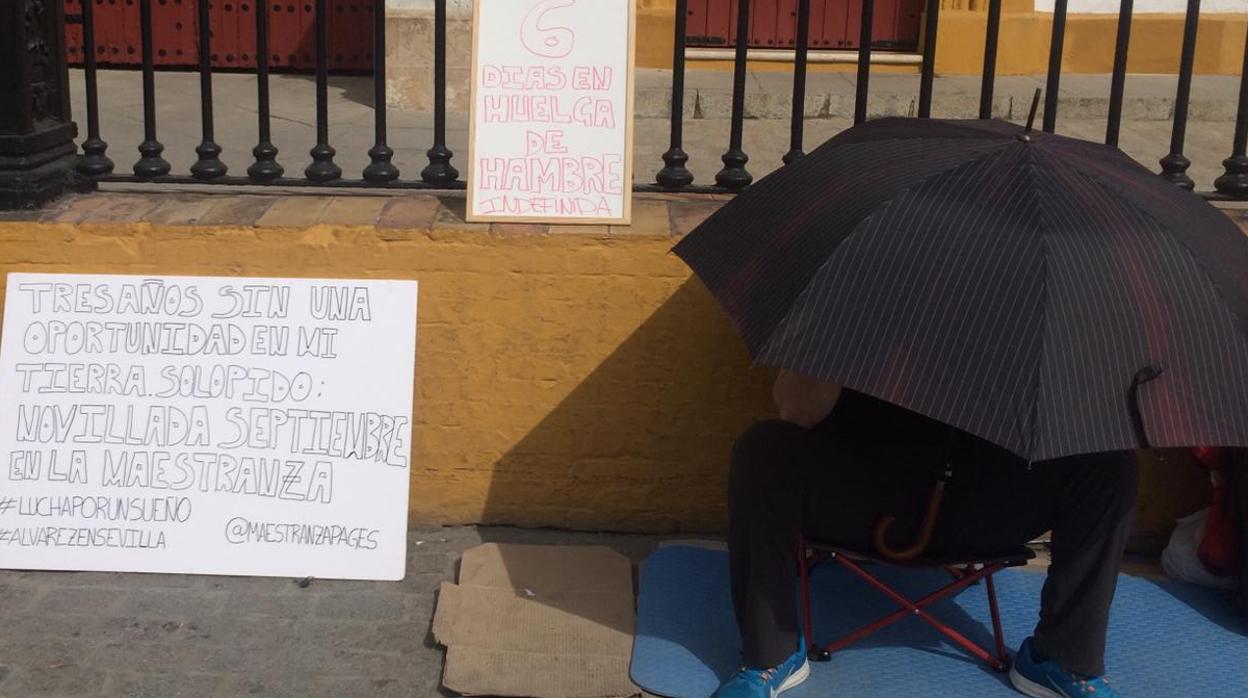 6
DIAS EN
HUELGA
DE
HAMBRE
INDEFINIDA
TRES AÑOS SIN UNA
OPORTUNIDAD EN MI
TIERRA. SOLO PIDO:
NOVILLADA SEPTIEMBRE
EN LA MAESTRANZA
#LUCHAPORUNSUEÑO
#ALVAREZENSEVILLA
@MAESTRANZAPAGES